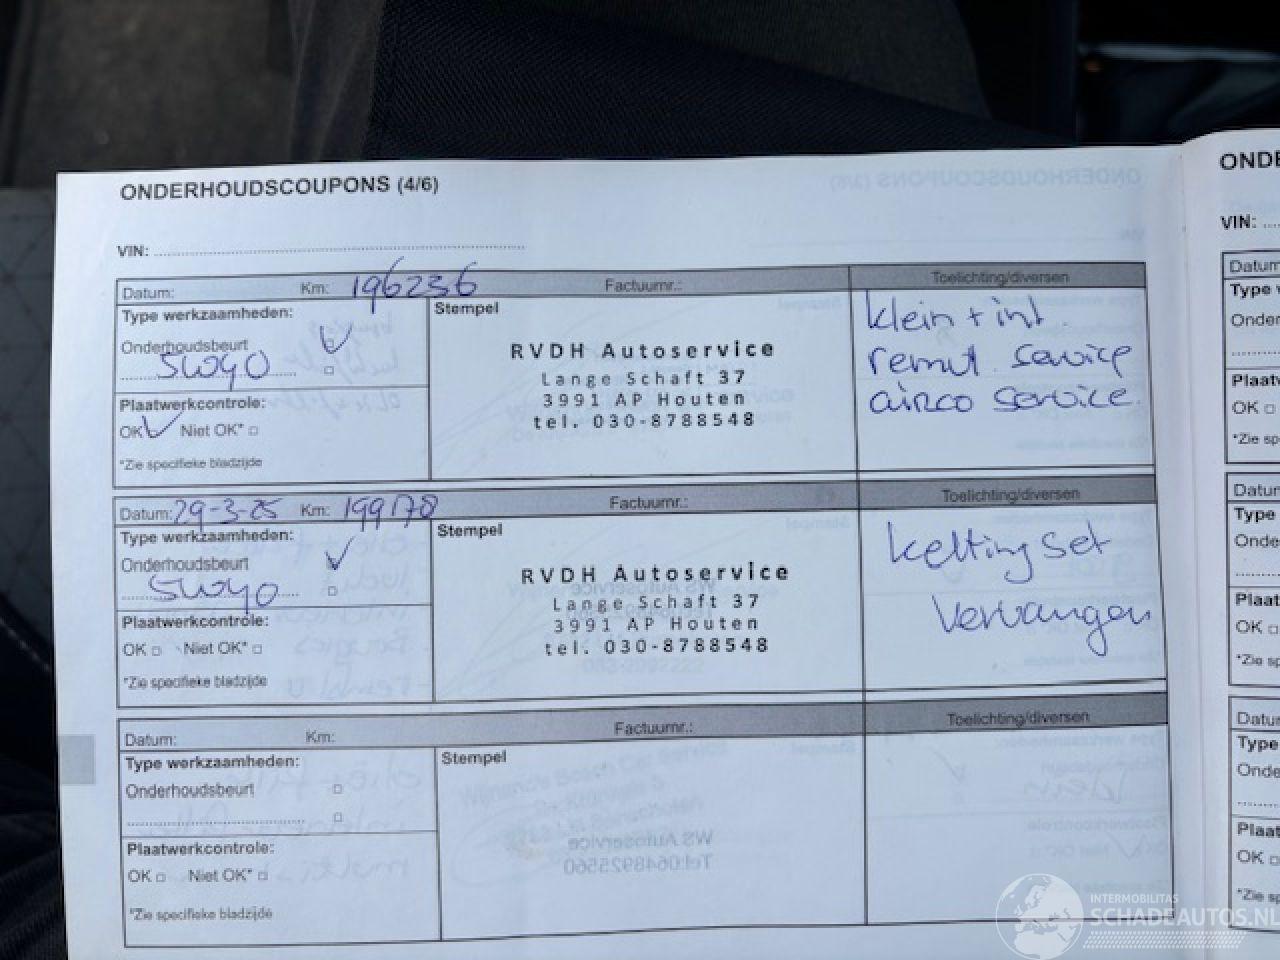 ONDERHOUDSCOUPONS (4/6)
VIN:
Datum: Km: 196236 Factuurnr.: Toelichting/diversen
Type werkzaamheden:
Onderhoudsbeurt
5W40
Plaatwerkcontrole:
OK Niet OK*
*Zie specifieke bladzijde
Stempel
RVDH Autoservice
Lange Schaft 37
3991 AP Houten
tel. 030-8788548
klein + int.
remvl. service
airco service.
Datum: 29-3-25 Km: 199178 Factuurnr.: Toelichting/diversen
Type werkzaamheden:
Onderhoudsbeurt
5W40
Plaatwerkcontrole:
OK Niet OK*
*Zie specifieke bladzijde
Stempel
RVDH Autoservice
Lange Schaft 37
3991 AP Houten
tel. 030-8788548
ketting set
vervangen
Datum: Km: Factuurnr.: Toelichting/diversen
Type werkzaamheden:
Onderhoudsbeurt
Plaatwerkcontrole:
OK Niet OK*
*Zie specifieke bladzijde
Stempel
WS Autoservice
Tel:0648925560
VIN:
INTERMOBILITAS
SCHADEAUTOS.NL